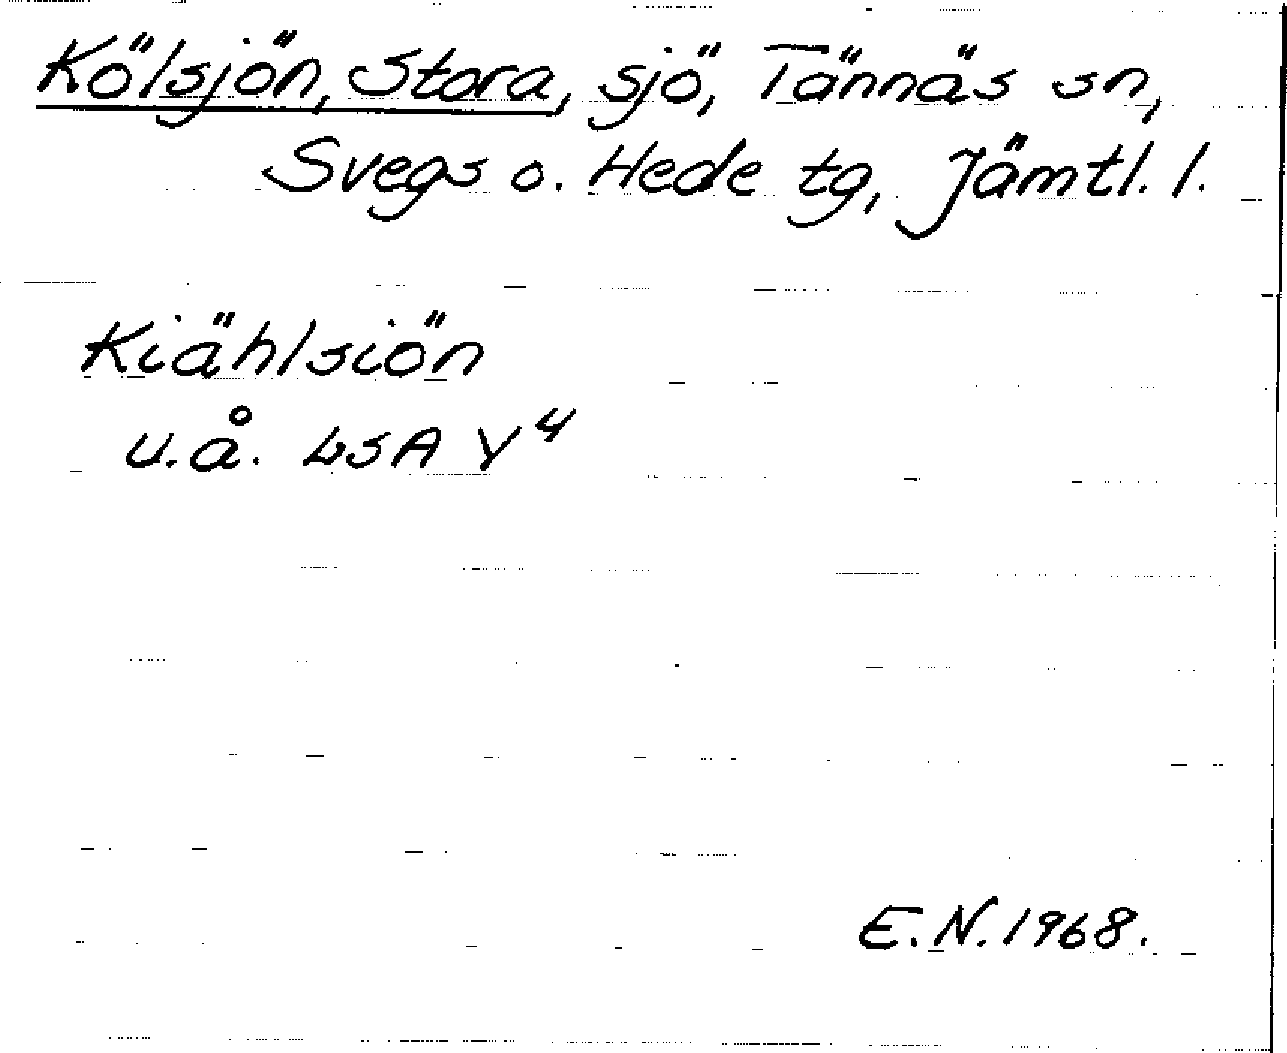 Kölsjön, Stora, sjö, Tännäs sn,
Svegs o. Hede tg, Jämtl. l.
Kiählsiön
u.å. LSA Y⁴
E.N. 1968.